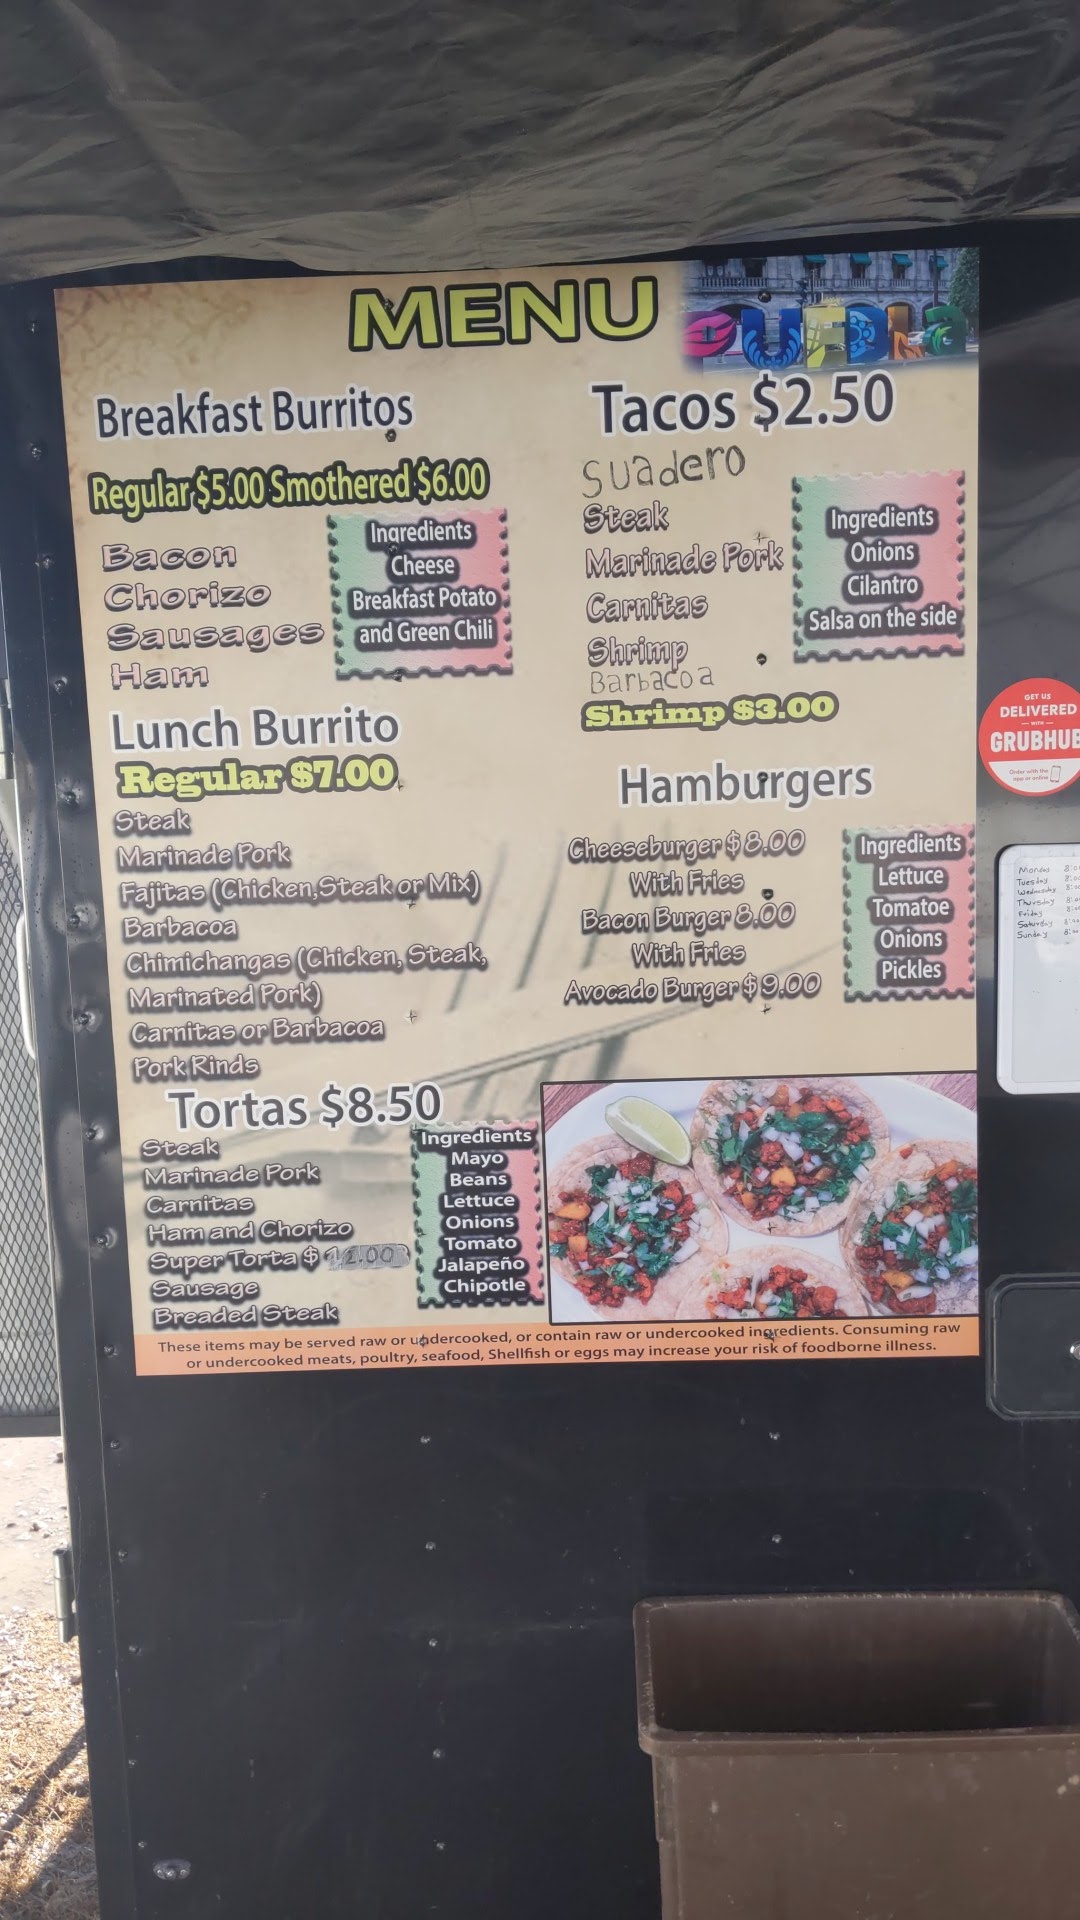 MENU
PUEBLA
Breakfast Burritos
Regular $5.00 Smothered $6.00
Bacon
Chorizo
Sausages
Ham
Ingredients
Cheese
Breakfast Potato
and Green Chili
Lunch Burrito
Regular $7.00
Steak
Marinade Pork
Fajitas (Chicken,Steak or Mix)
Barbacoa
Chimichangas (Chicken, Steak,
Marinated Pork)
Carnitas or Barbacoa
Pork Rinds
Tortas $8.50
Steak
Marinade Pork
Carnitas
Ham and Chorizo
Super Torta $
Sausage
Breaded Steak
Ingredients
Mayo
Beans
Lettuce
Onions
Tomato
Jalapeño
Chipotle
Tacos $2.50
Suadero
Steak
Marinade Pork
Carnitas
Shrimp
Barbacoa
Shrimp $3.00
Ingredients
Onions
Cilantro
Salsa on the side
Hamburgers
Cheeseburger $8.00
With Fries
Bacon Burger 8.00
With Fries
Avocado Burger $9.00
Ingredients
Lettuce
Tomatoe
Onions
Pickles
These items may be served raw or undercooked, or contain raw or undercooked ingredients. Consuming raw
or undercooked meats, poultry, seafood, Shellfish or eggs may increase your risk of foodborne illness.
GET US
DELIVERED
WITH
GRUBHUB
Order with the
app or online
Monday
Tuesday
Wednesday
Thursday
Friday
Saturday
Sunday